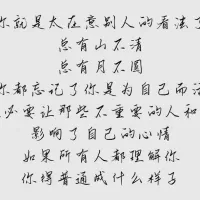 你就是太在意别人的看法了
总有山不清
总有月不圆
你都忘记了你是为自己而活
必要让那些不重要的人和
影响了自己的心情
如果所有人都理解你
你得普通成什么样子